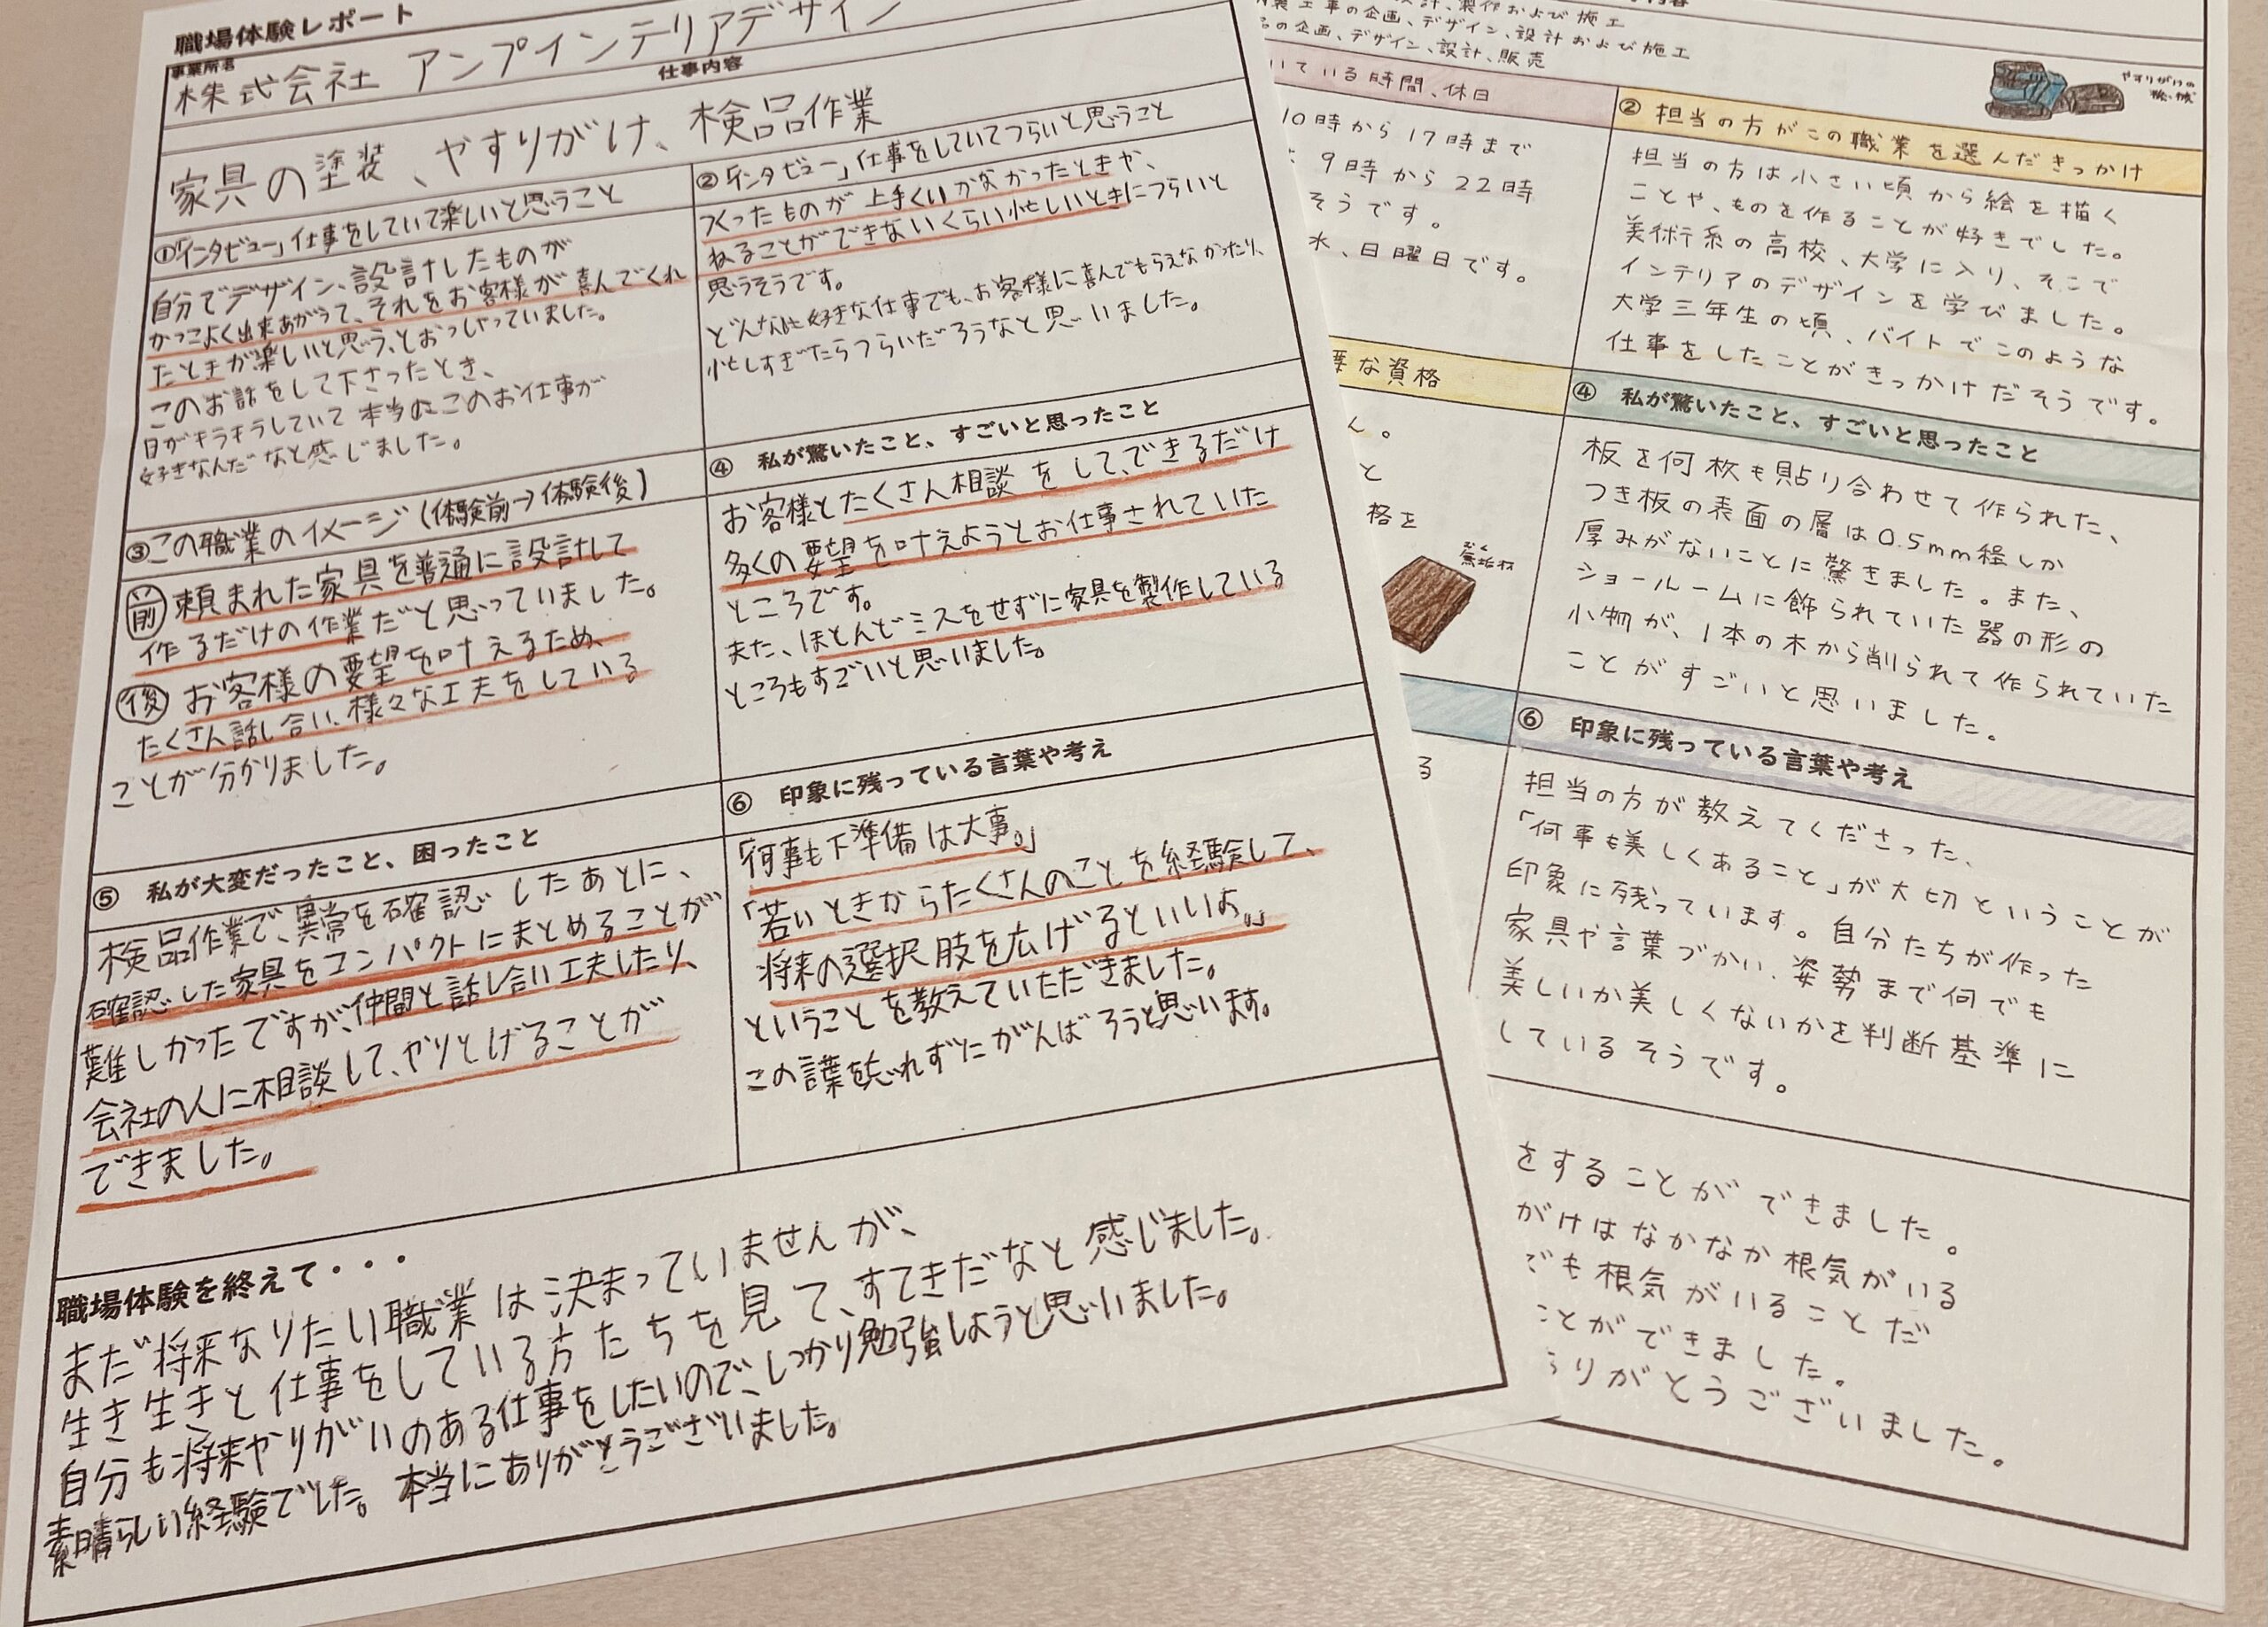 職場体験レポート
事業所名
株式会社 アンプインテリアデザイン
仕事内容
家具の塗装、やすりがけ、検品作業
①「インタビュー」仕事をしていて楽しいと思うこと
自分でデザイン、設計したものが
かっこよく出来あがって、それをお客様が喜んでくれ
たときが楽しいと思う、とおっしゃっていました。
このお話をして下さったとき、
目がキラキラしていて本当にこのお仕事が
好きなんだなと感じました。
②「インタビュー」仕事をしていてつらいと思うこと
つくったものが上手くいかなかったときや、
ねることができないくらい忙しいときにつらいと
思うそうです。
どんなに好きな仕事でも、お客様に喜んでもらえなかったり、
忙しすぎたらつらいだろうなと思いました。
③この職業のイメージ(体験前→体験後)
前 頼まれた家具を普通に設計して
作るだけの作業だと思っていました。
後 お客様の要望を叶えるため、
たくさん話し合い、様々な工夫をしている
ことが分かりました。
④ 私が驚いたこと、すごいと思ったこと
お客様とたくさん相談をして、できるだけ
多くの要望を叶えようとお仕事されていた
ところです。
また、ほとんどミスをせずに家具を製作している
ところもすごいと思いました。
⑤ 私が大変だったこと、困ったこと
検品作業で、異常を確認したあとに、
確認した家具をコンパクトにまとめることが
難しかったですが、仲間と話し合い工夫したり、
会社の人に相談して、やりとげることが
できました。
⑥ 印象に残っている言葉や考え
「何事も下準備は大事。」
「若いときからたくさんのことを経験して、
将来の選択肢を広げるといいよ。」
ということを教えていただきました。
この言葉を忘れずにがんばろうと思います。
職場体験を終えて・・・
まだ将来なりたい職業は決まっていませんが、
生き生きと仕事をしている方たちを見て、すてきだなと感じました。
自分も将来やりがいのある仕事をしたいので、しっかり勉強しようと思いました。
素晴らしい経験でした。本当にありがとうございました。
設計、製作および施工
工事の企画、デザイン、設計および施工
の企画、デザイン、設計、販売
やすりがけの
機械
いている時間、休日
10時から17時まで
9時から22時
そうです。
水、日曜日です。
② 担当の方がこの職業を選んだきっかけ
担当の方は小さい頃から絵を描く
ことや、ものを作ることが好きでした。
美術系の高校、大学に入り、そこで
インテリアのデザインを学びました。
大学三年生の頃、バイトでこのような
仕事をしたことがきっかけだそうです。
要な資格
ん。
と
格を
むく
無垢材
④ 私が驚いたこと、すごいと思ったこと
板を何枚も貼り合わせて作られた、
つき板の表面の層は0.5mm程しか
厚みがないことに驚きました。また、
ショールームに飾られていた器の形の
小物が、1本の木から削られて作られていた
ことがすごいと思いました。
る
⑥ 印象に残っている言葉や考え
担当の方が教えてくださった、
「何事も美しくあること」が大切ということが
印象に残っています。自分たちが作った
家具や言葉づかい、姿勢まで何でも
美しいか美しくないかを判断基準に
しているそうです。
をすることができました。
がけはなかなか根気がいる
でも根気がいることだ
ことができました。
りがとうございました。